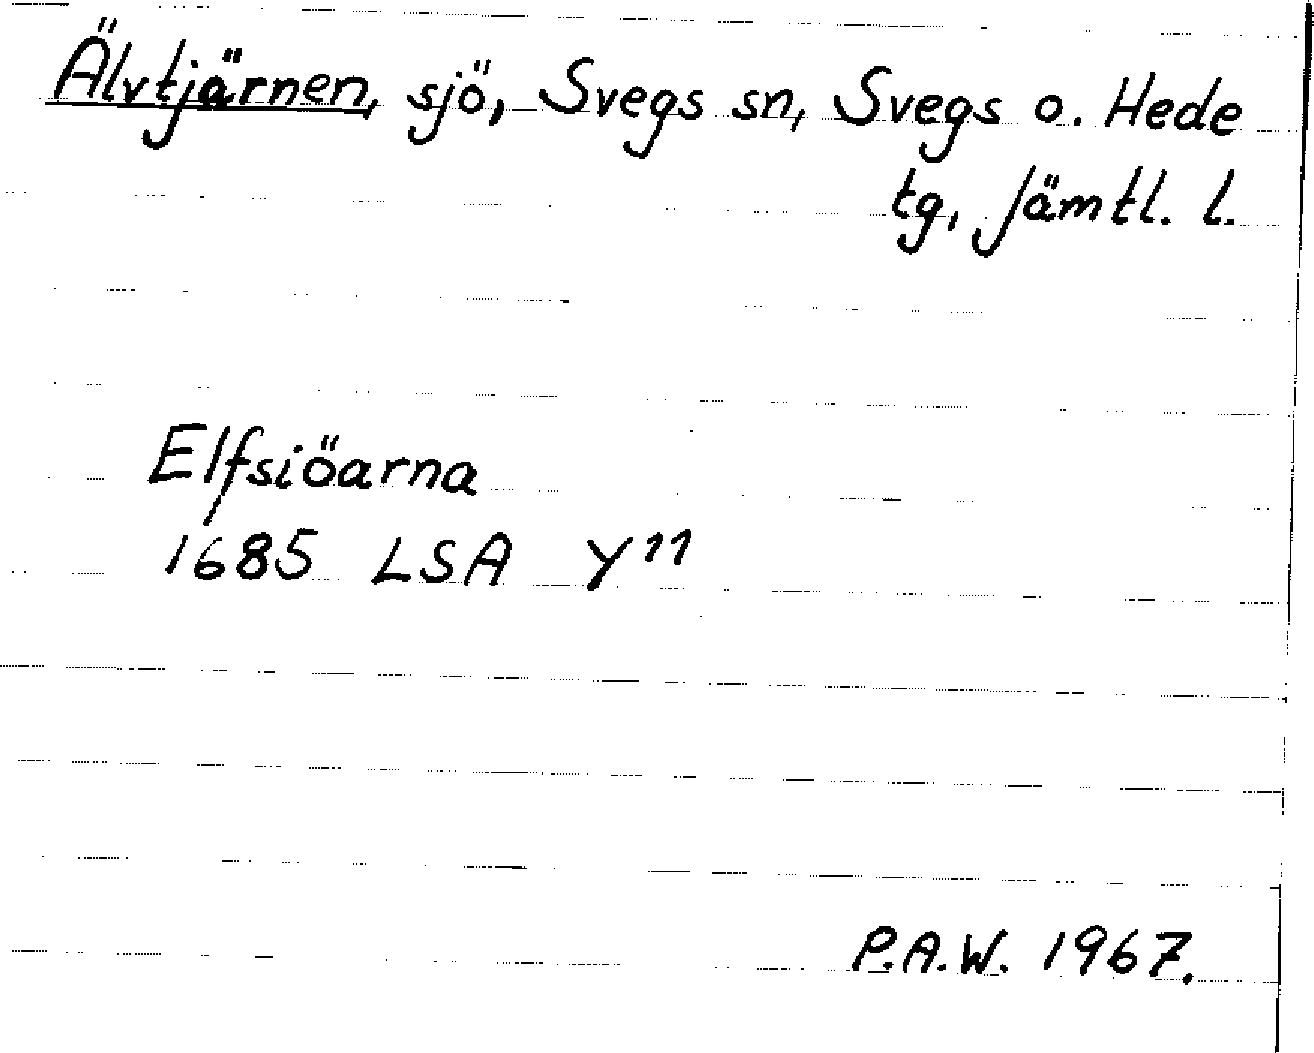 Älvtjärnen, sjö, Svegs sn, Svegs o. Hede
tg, Jämtl. l.
Elfsiöarna
1685 LSA Y11
P.A.W. 1967.